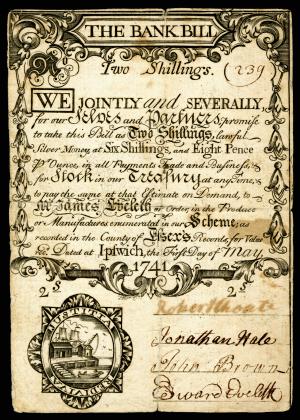 THE BANK BILL
Two Shillings. (239
WE JOINTLY and SEVERALLY,
for our Selves and Partners, promise
to take this Bill as Two Shillings, lawful
Silver Money, at Six Shillings, and Eight Pence
℔ Ounce, in all Payments, Trade and Business,
for Stock in our Treasury at any Time,
to pay the same at that Estimate on Demand, to
Mr James Eveleth or Order, in the Produce
or Manufactures enumerated in our Scheme; as
recorded in the County of Essex's Records, for Value
Recd. Dated at Ipswich, the First Day of May,
1741
2s 2s
Robert Choate
Jonathan Hale
John Brown
Edward Eveleth